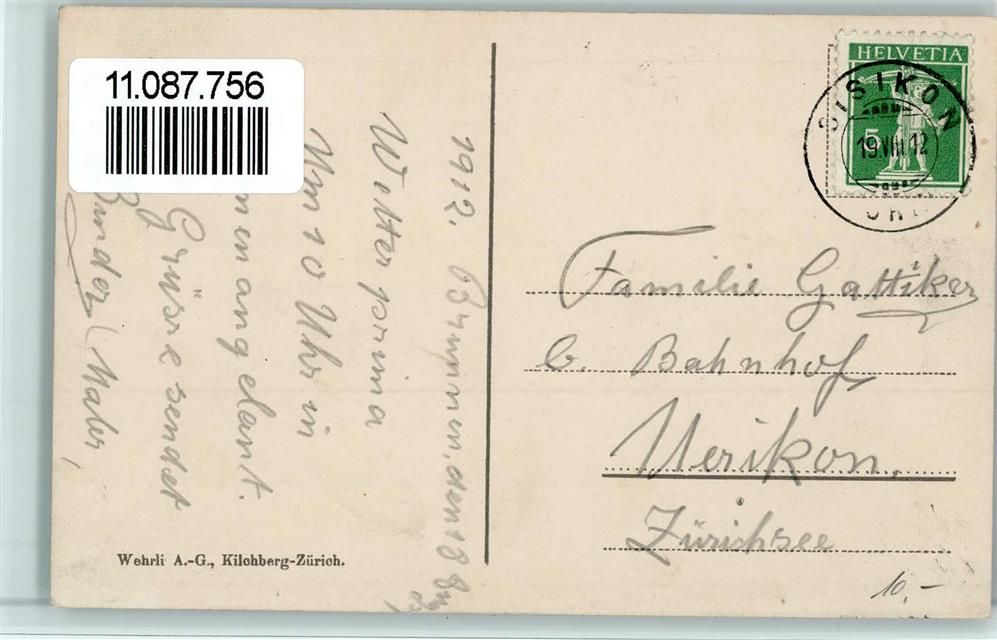 11.087.756
HELVETIA
5
SISIKON
19.VIII.12
URI
Brunnen, den 18
1912.
Wetter prima
Um 10 Uhr in
angelant.
Grüsse sendet
Maler,
Familie Gattiker
b. Bahnhof
Uerikon.
Zürichsee
Wehrli A.-G., Kilchberg-Zürich.
10.-